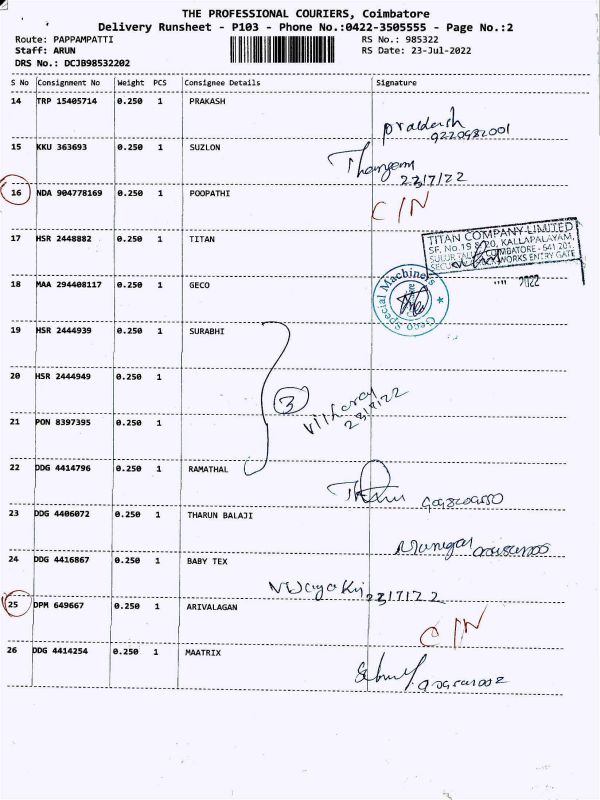 THE PROFESSIONAL COURIERS, Coimbatore
Delivery Runsheet - P103 - Phone No.:0422-3505555 - Page No.:2
Route: PAPPAMPATTI RS No.: 985322
Staff: ARUN RS Date: 23-Jul-2022
DRS No.: DCJB98532202
S No Consignment No Weight PCS Consignee Details Signature
14 TRP 15405714 0.250 1 PRAKASH
15 KKU 363693 0.250 1 SUZLON
23/7/22
16 NDA 904778169 0.250 1 POOPATHI
C/N
17 HSR 2448882 0.250 1 TITAN
TITAN COMPANY LIMITED
SF. No.19 & 20, KALLAPALAYAM,
SULUR TALUK, COIMBATORE - 641 201.
WORKS ENTRY GATE
2022
18 MAA 294408117 0.250 1 GECO
Geco Special Machines
19 HSR 2444939 0.250 1 SURABHI
20 HSR 2444949 0.250 1
3
23/7/22
21 PON 8397395 0.250 1
22 DDG 4414796 0.250 1 RAMATHAL
23 DDG 4406072 0.250 1 THARUN BALAJI
24 DDG 4416867 0.250 1 BABY TEX
23/7/22
25 DPM 649667 0.250 1 ARIVALAGAN
C/N
26 DDG 4414254 0.250 1 MAATRIX